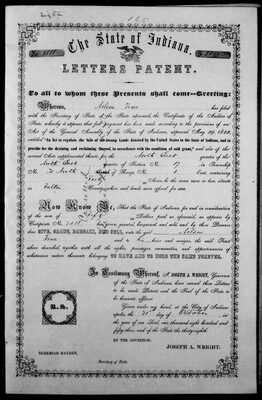 The State of Indiana.
LETTERS PATENT.
To all to whom these Presents shall come—Greeting:
Whereas, Nelson has filed
with the Secretary of State of the State aforesaid the Certificate of the Auditor of
State, whereby it appears that full payment has been made according to the provisions of an
Act of the General Assembly of the State of Indiana, approved May 29, 1852,
entitled "An Act to regulate the Sale of the Swamp Lands donated by the United States to the State of Indiana, and to
provide for the draining and reclaiming thereof, in accordance with the condition of said grant," and also of the
several Acts supplemental thereto, for the North East quarter of the
South East quarter of Section No. 17 Township
No. 30 North of Range No. East, containing
Forty Acres, in the same more or less, situate
in Fulton County, and lands were offered for sale
Now Know Ye, That the State of Indiana for and in consideration
of the sum of Dollars, paid as aforesaid, as appears by
Certificate No. granted, bargained and sold, and by these Presents
does GIVE, GRANT, BARGAIN, AND SELL, unto the said Nelson
and to his heirs and assigns, the said Tract
above described, together with all the rights, privileges, immunities, and appurtenances of
whatsoever nature thereunto belonging, TO HAVE AND TO HOLD THE PREMISES FOREVER.
In Testimony Whereof, I, JOSEPH A. WRIGHT, Governor
of the State of Indiana, have caused these Letters
to be made Patent, and the Seal of the State to
be hereunto affixed.
Given under my hand, at the City of Indianapolis, the day of October in
the year of our Lord, one thousand eight hundred and
fifty-three and of the State the thirty-eighth.
BY THE GOVERNOR:
JOSEPH A. WRIGHT.
NEHEMIAH HAYDEN,
Secretary of State.